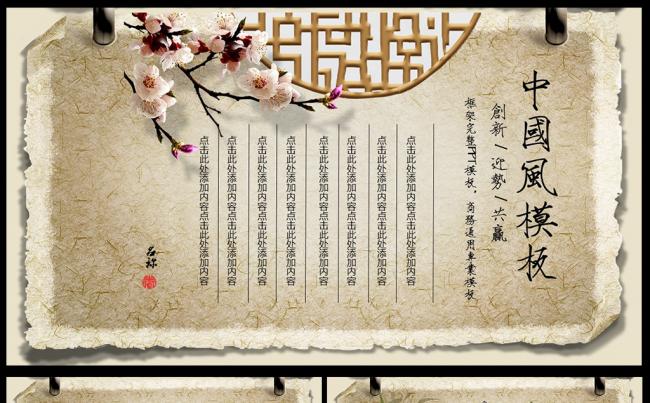 中國風模板
創新/迎勢/共贏
框架完整PPT模板，商務通用專業模板
点击此处添加内容点击此处添加内容
点击此处添加内容点击此处添加内容
点击此处添加内容点击此处添加内容
点击此处添加内容点击此处添加内容
点击此处添加内容点击此处添加内容
点击此处添加内容点击此处添加内容
点击此处添加内容点击此处添加内容
点击此处添加内容点击此处添加内容